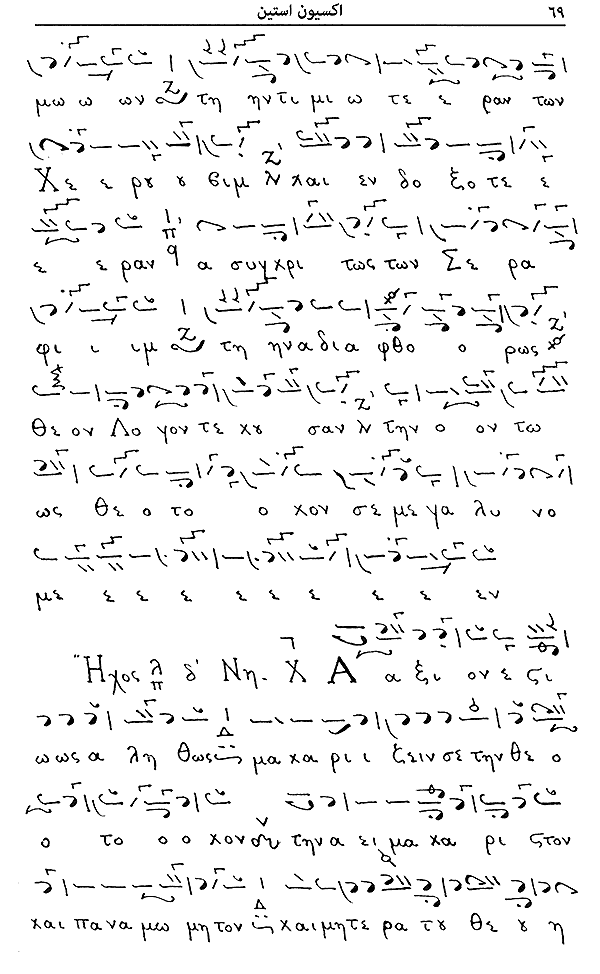 ٦٩ اكسيون استين
μω ω ων τη ην τι μι ω τε ε ραν των
Χε ε ρου ου βιμ και εν δο ξο τε ε
ε ε ραν α συγκρι τως των Σε ρα
φι ι ιμ τη ην α δια φθο ο ρως
θε ον Λο γον τε κου σαν την ο ον τω
ως θε ο το ο κον σε με γα λυ νο
με ε ε ε ε ε ε ε ε εν
Ἦχος λ π δ' Νη. Χ Α α ξι ον ε ςι
ω ως α λη θως μα κα ρι ι ζειν σε την θε ο
ο το ο ο κον την α ει μα κα ρι ςτον
και πα να μω μη τον και μη τε ρα του θε ου η